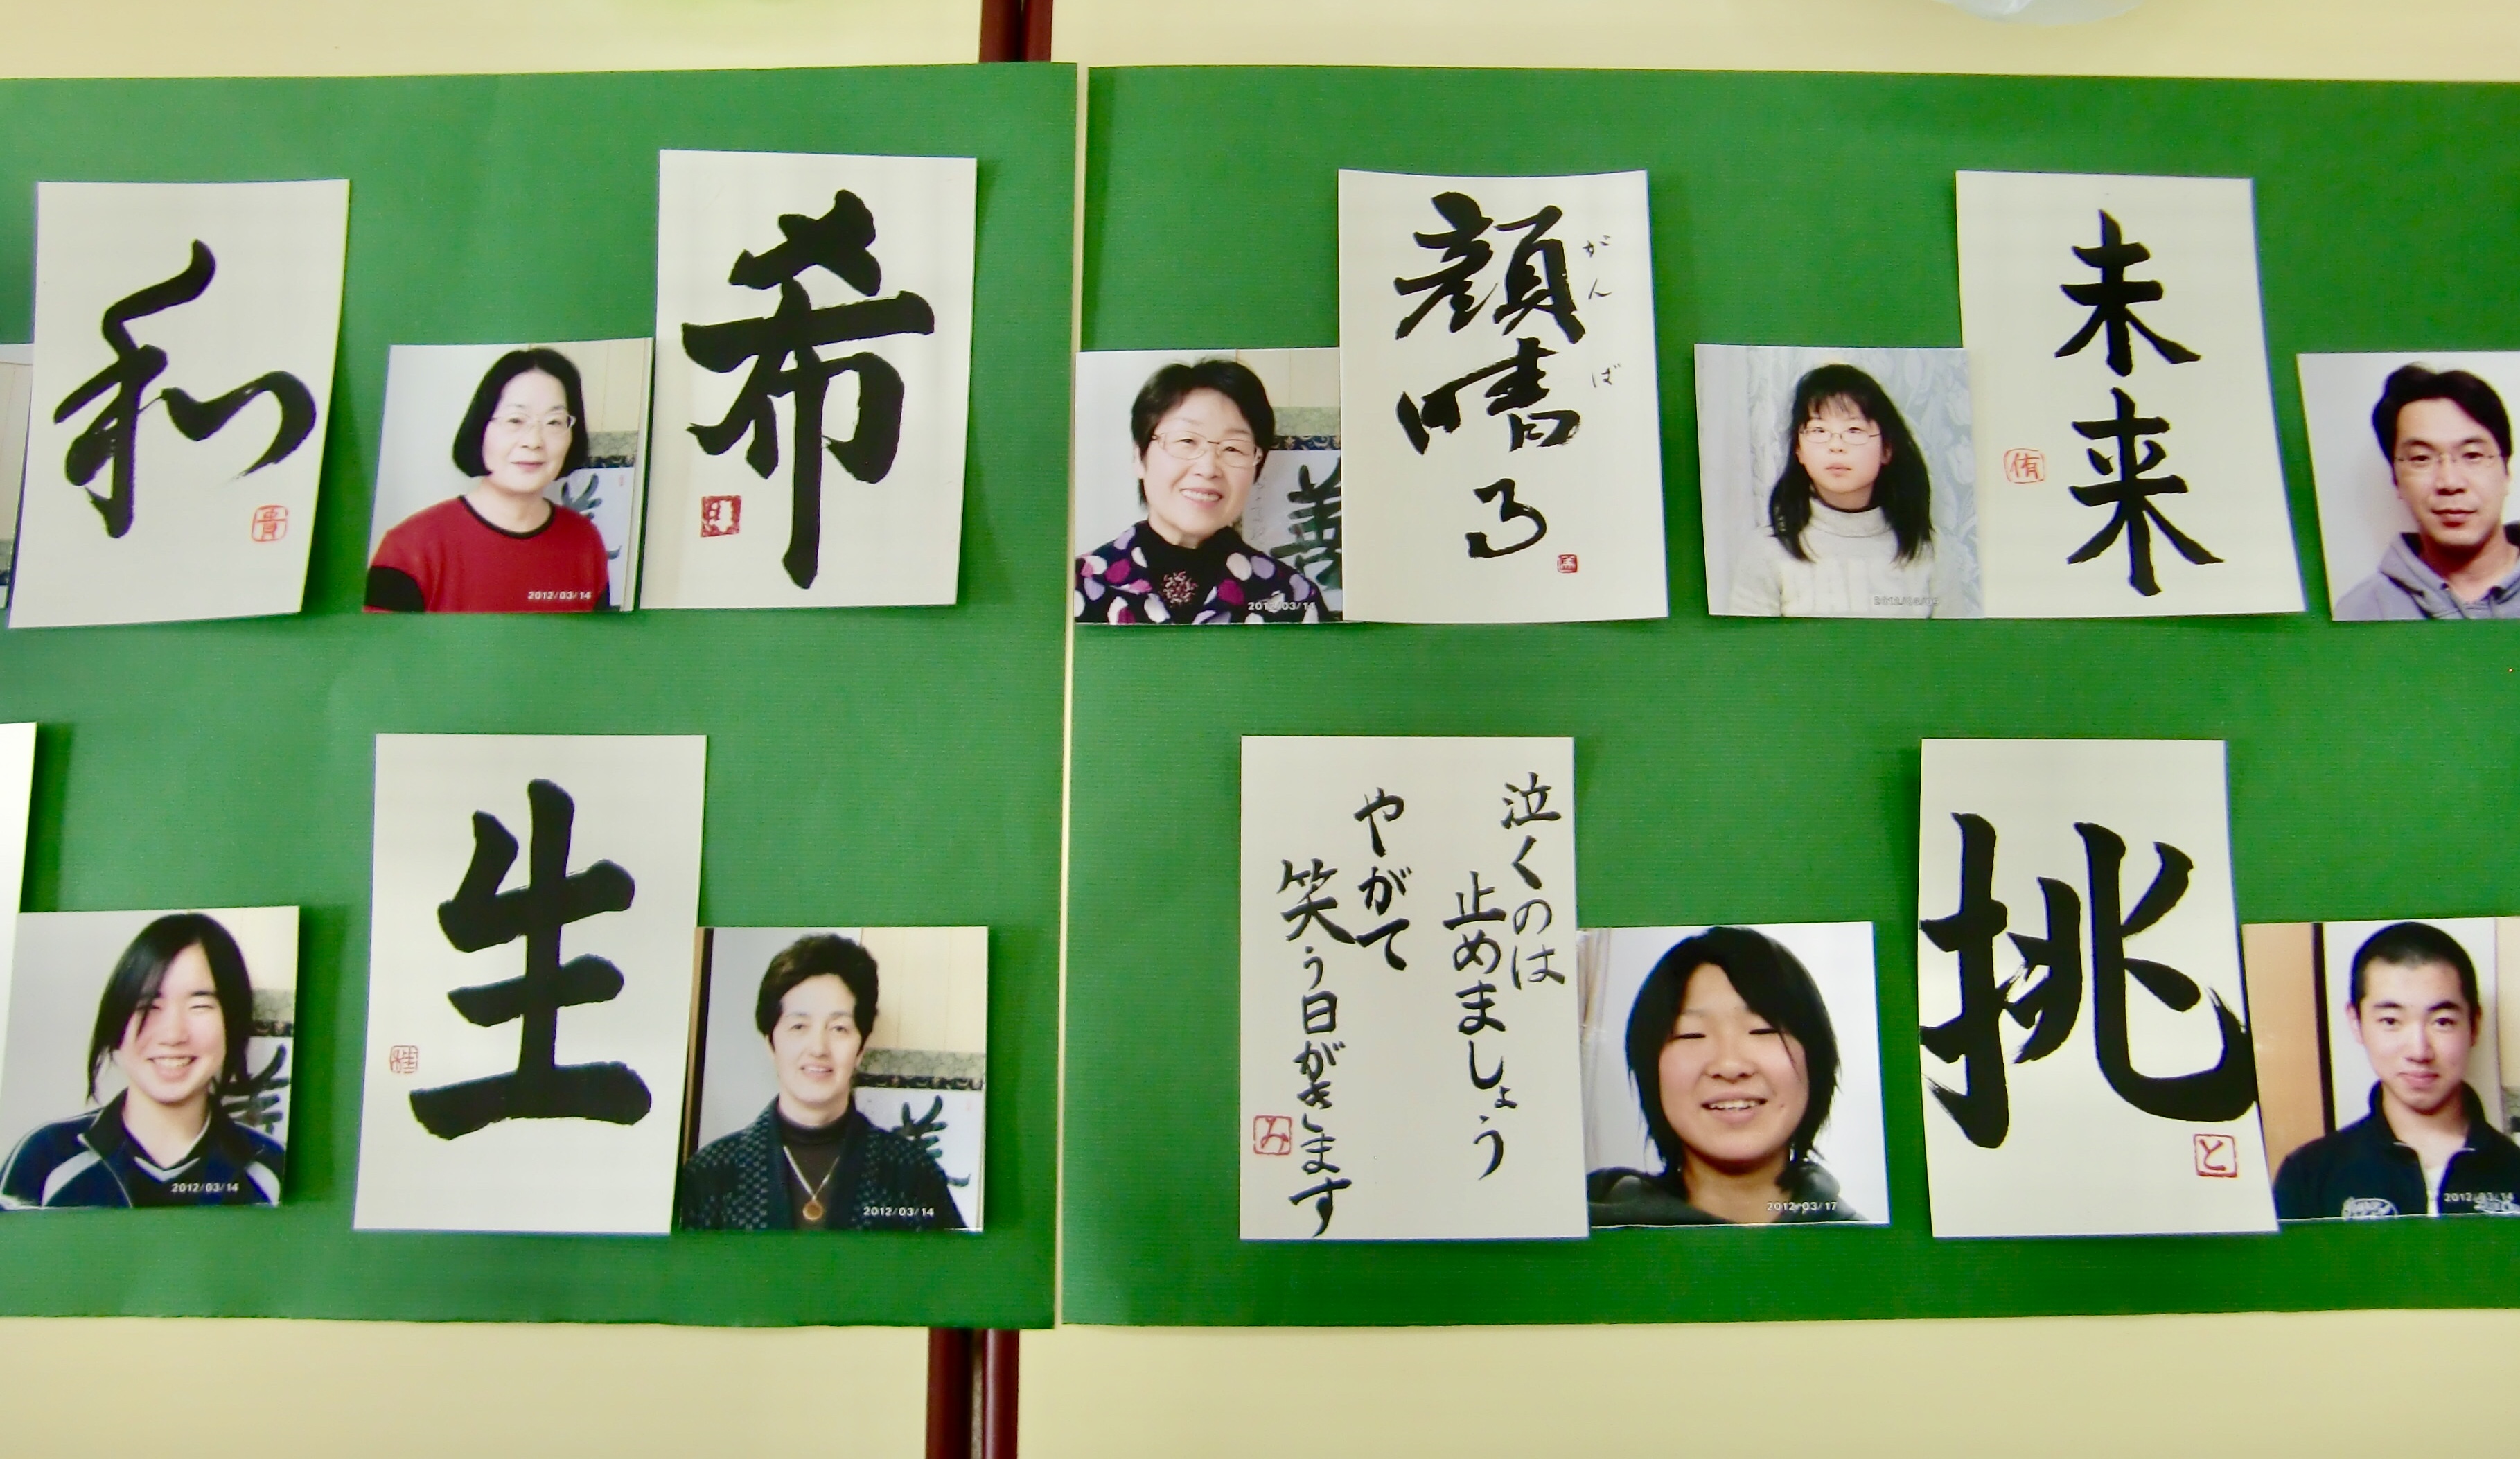 和
貴
2012/03/14
希
2012/03/14
顔晴る
がんば
未来
侑
生
桂
2012/03/14
2012/03/14
泣くのは
止めましょう
やがて
笑う日がきます
み
2012/03/17
挑
と
2012/03/14